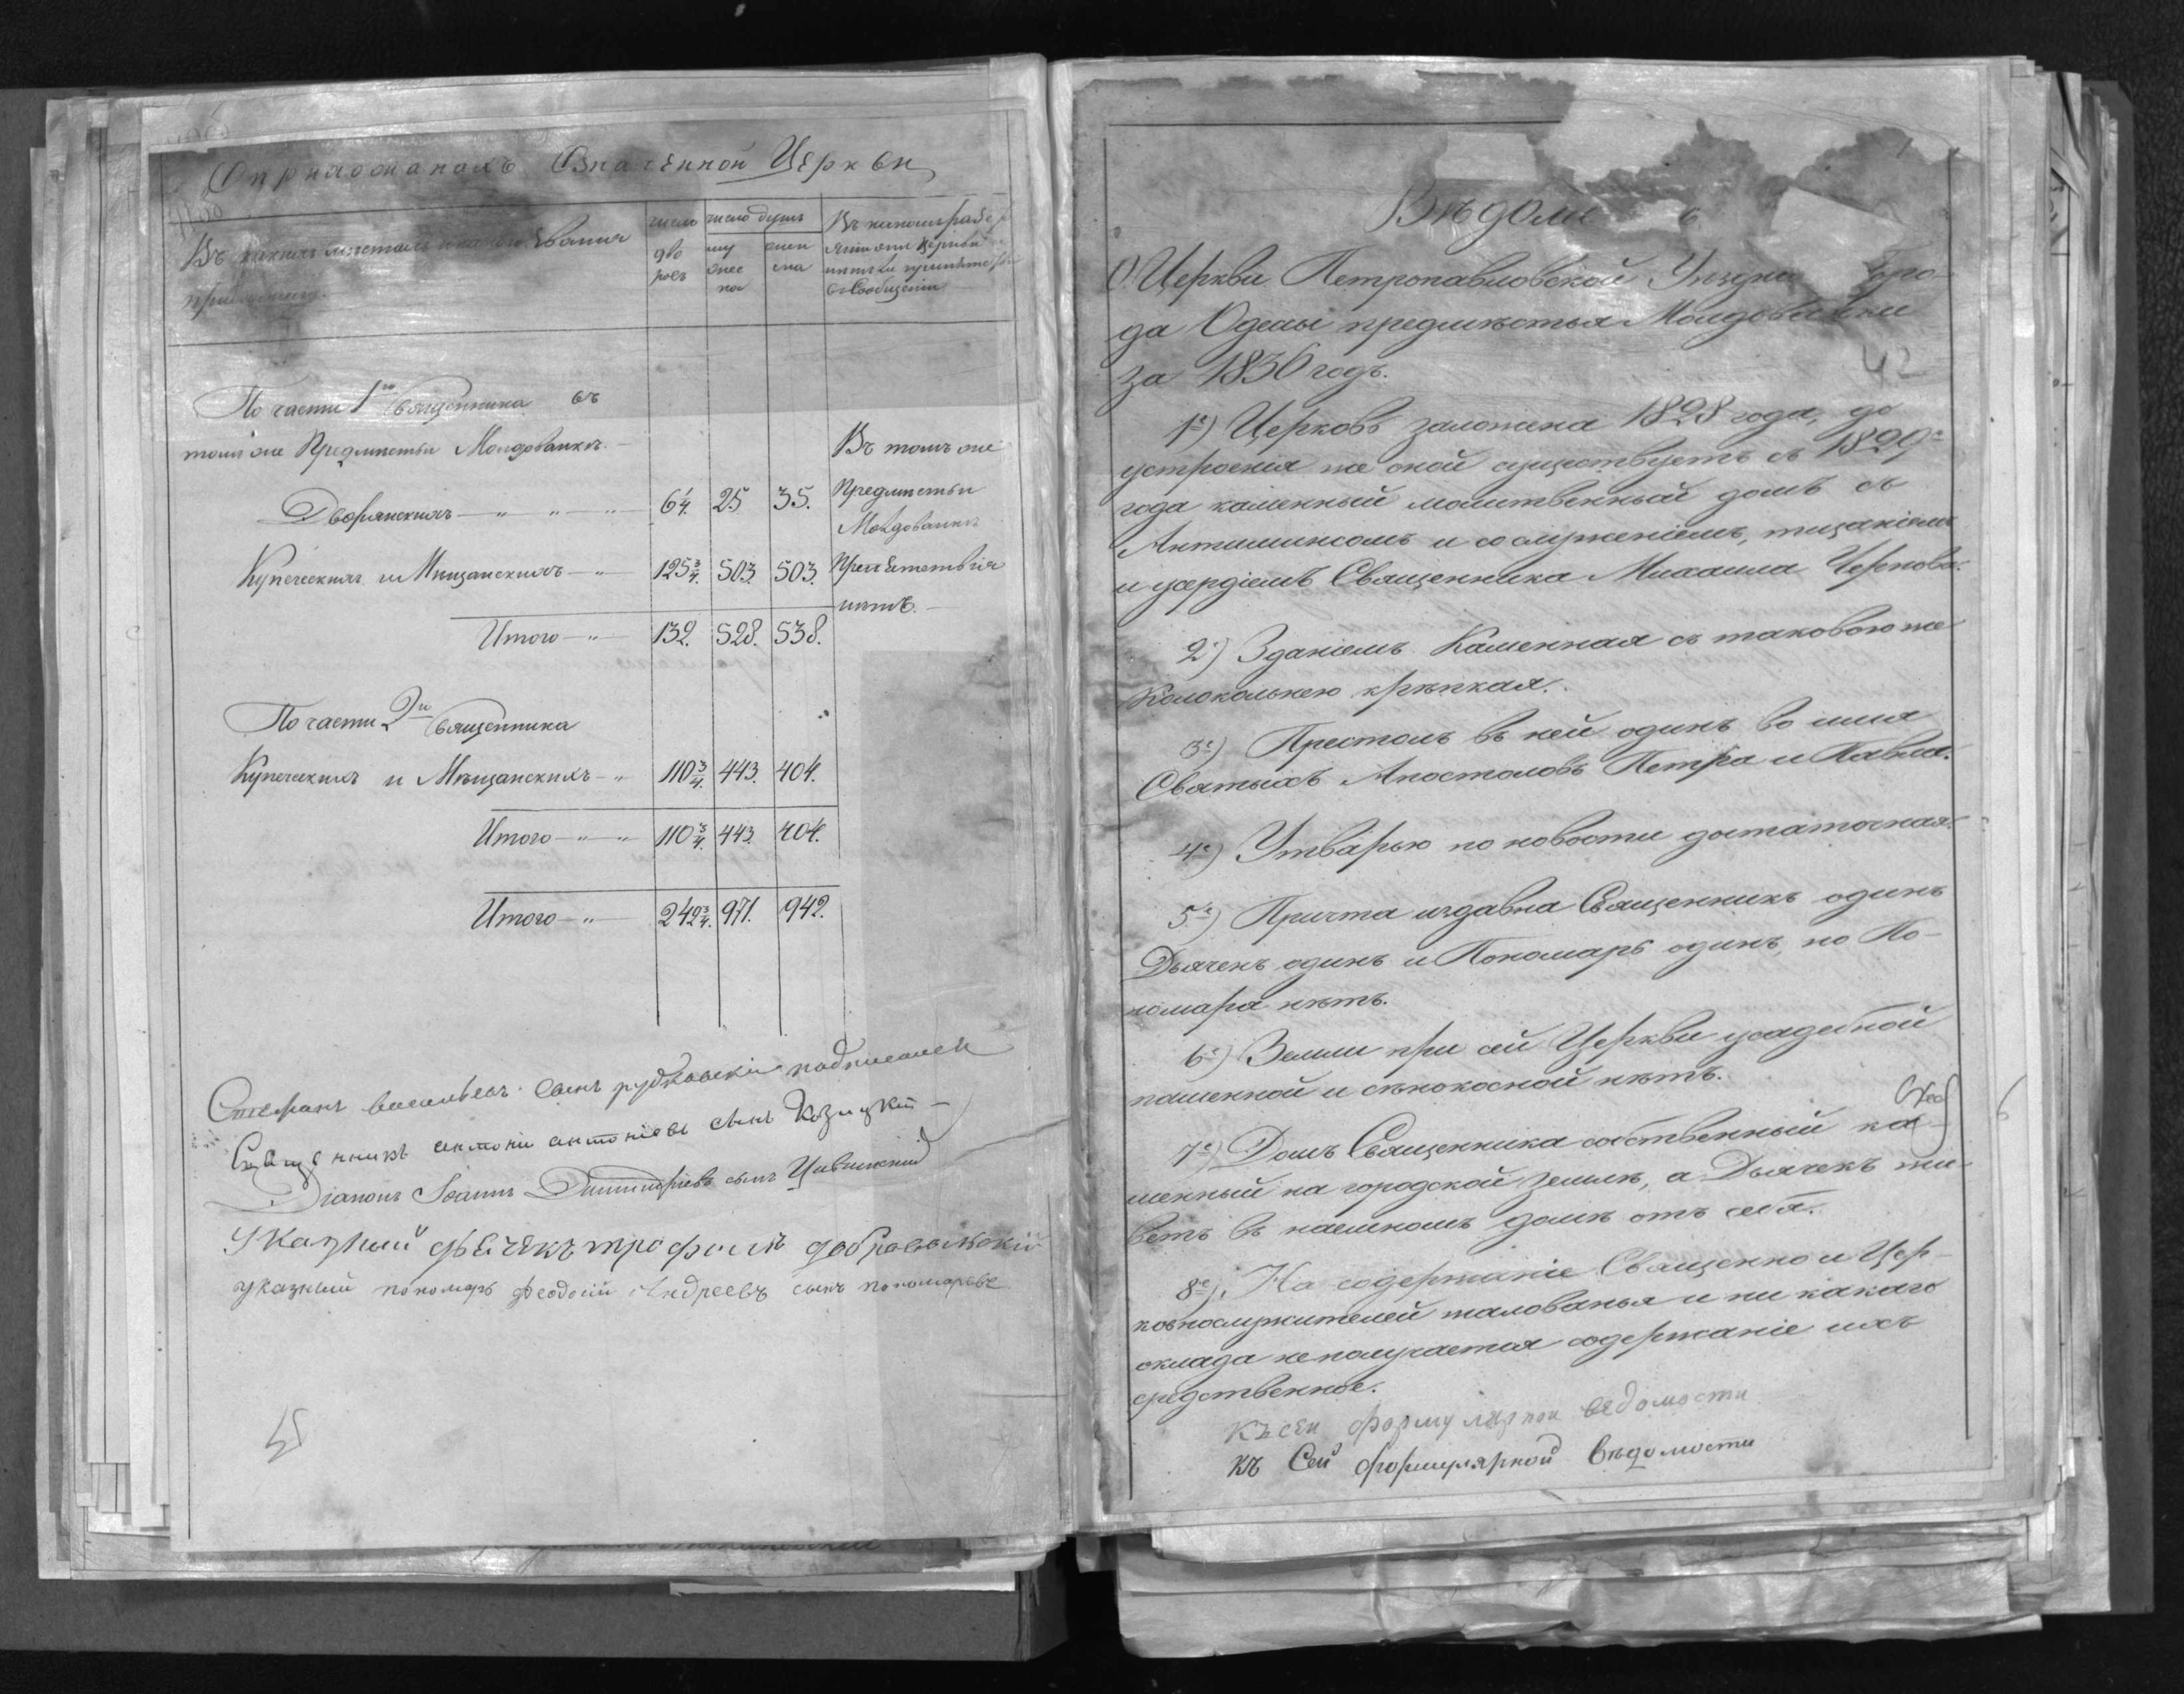 О прихожанахъ Означенной Церкви
Въ какихъ местахъ и какого звания прихожане.
число дво ровъ
число душъ
му жес ка
жен ска
Въ какомъ разс
оянии Церкви
нетъ ли препятс
въ сообщении
По части 1го Священника въ
томъ же Предместьи Молдованкъ.
Дворянскихъ — " — " — " 6 1/4. 25 35.
Купеческихъ и Мѣщанскихъ — " 125 3/4. 503. 503.
Итого — " — 132. 528. 538.
Въ томъ же
Предместьи
Молдованкъ
Препятствія
нѣтъ. —
По части 2го Священника
Купеческихъ и Мѣщанскихъ — " 110 3/4. 443. 404.
Итого — " — " 110 3/4. 443. 404.
Итого — " — 242 3/4. 971. 942.
Стефанъ васильевъ сынъ рудковски подписался
Священникъ антони антоніевъ сынъ Козицкій —
Діаконъ Іоаннъ Димитріевъ сынъ Цивинский
Указный дьячекъ трофимъ добровольскій
указный пономарь феодосий Андреевъ сынъ пономаревъ
45
Вѣдомо
О Церкви Петропавловской Уезднаго Горо-
да Одесы предмѣстья Молдованки
за 1836 годъ.
42
1е) Церковь заложена 1828 года, до
устроенія же оной существуетъ съ 1829го
года каменный молитвенный домъ съ
Антиминсомъ и со служеніемъ, тщаніемъ
и усердіемъ Священника Михаила Чернова.
2е) Зданіемъ Каменная съ таковою же
Колокольнею крѣпкая.
3е) Престолъ въ ней одинъ во имя
Святыхъ Апостоловъ Петра и Павла.
4е) Утварью по новости достаточная.
5е) Причта издавна Священникъ одинъ
Дьячекъ одинъ и Пономарь одинъ, но По-
номаря нѣтъ.
6е) Земли при сей Церкви усадебной
пашенной и сѣнокосной нѣтъ.
7е) Домъ Священника собственный ка-
менный на городской землѣ, а Дьячекъ жи-
ветъ въ наемномъ домѣ отъ себя.
6
8е) На содержаніе Священно и Цер-
ковнослужителей жалованья и ни какаго
оклада неполучается содержаніе ихъ
средственное.
къ сей формулярной ведомости
къ Сей формулярной вѣдомости